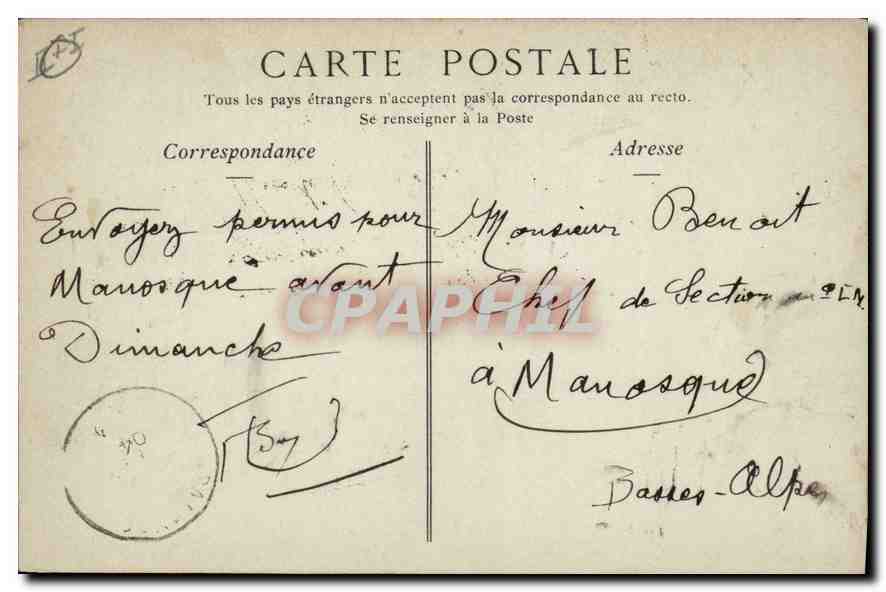 CARTE POSTALE
Tous les pays étrangers n'acceptent pas la correspondance au recto.
Se renseigner à la Poste
Correspondance
Envoyez permis pour
Manosque avant
Dimanche
Adresse
Monsieur Benoit
Chef de Section
à Manosque
Basses-Alpes
CPAPHIL